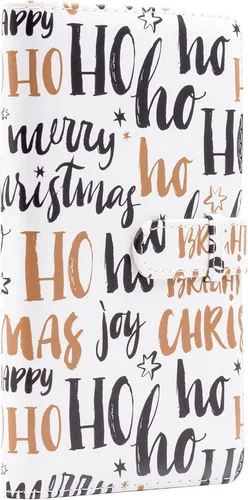 APPY HO ho
HO HO ho
merry ho
christmas HO
HO ho BRIGHT
BRIGHT
MAS joy CHRIS
APPY HO ho
HO HO ho